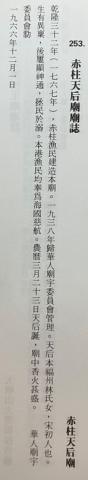 253.
赤柱天后廟誌
赤柱天后廟
乾隆三十二年（一七六七年），赤柱漁民建造本廟。一九三八年歸華人廟宇委員會管理。天后本福州林氏女，宋初人也。
生有異稟，後屢顯神通，拯民於溺。本港漁民均奉為海國慈航。農曆三月二十三日天后誕，廟中香火甚盛。
華人廟宇
委員會勒
一九六六年十二月一日